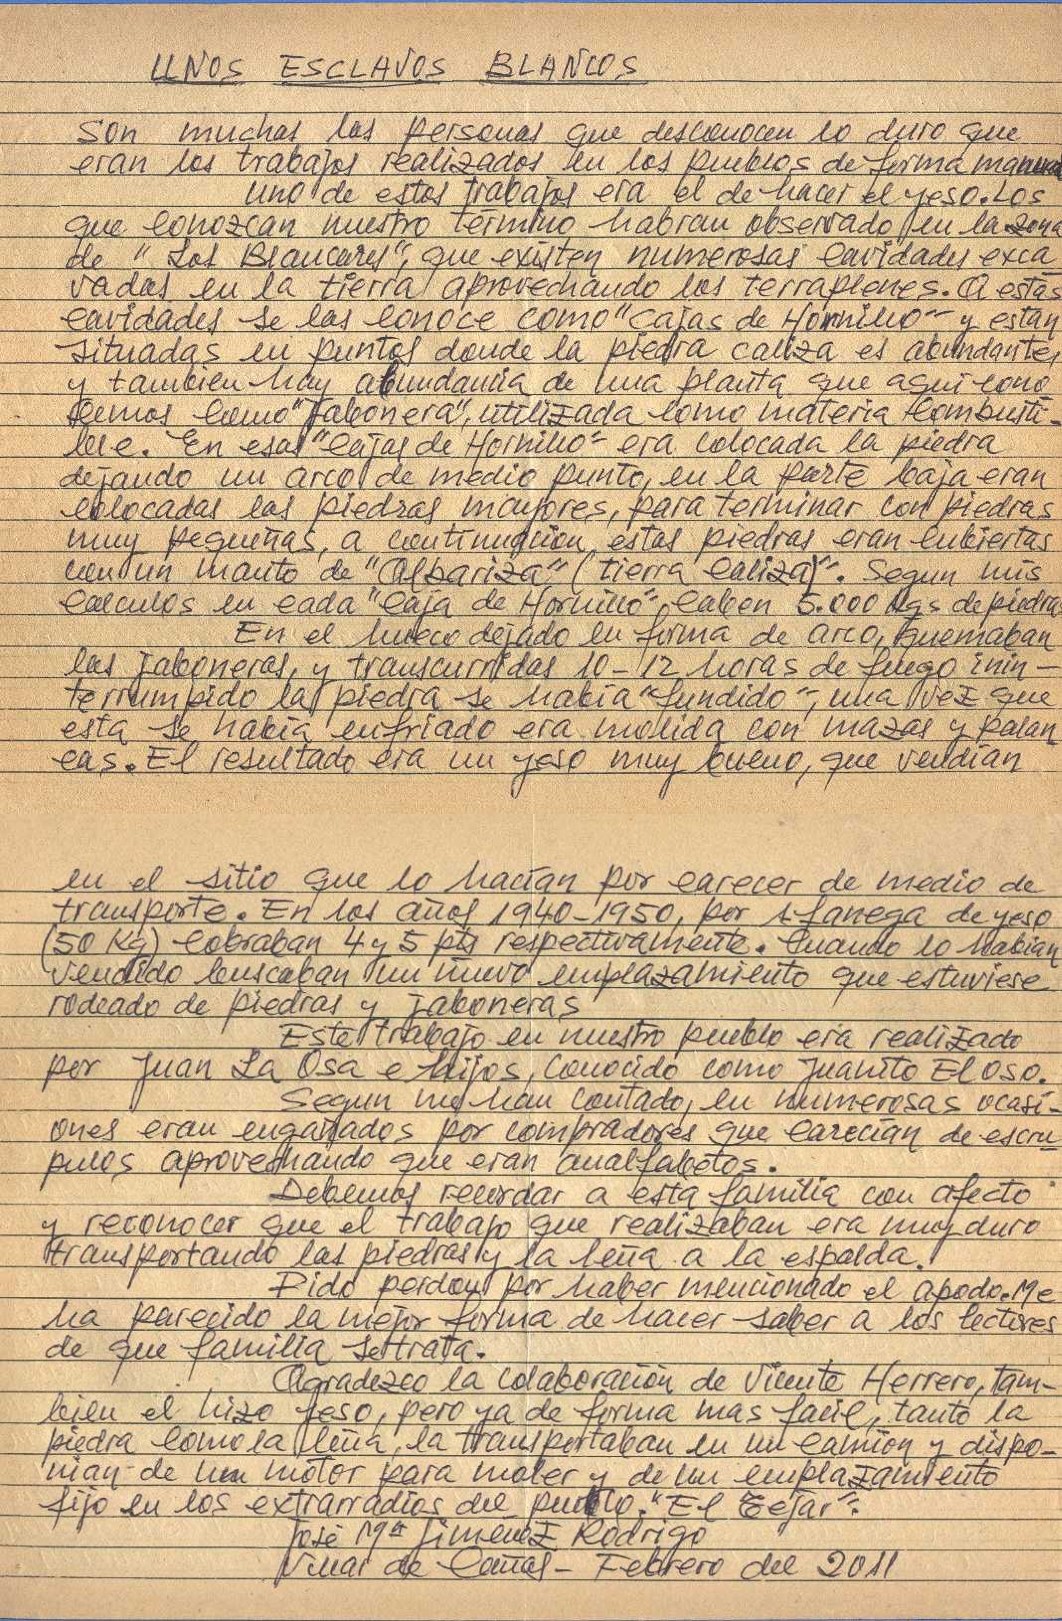 UNOS ESCLAVOS BLANCOS
Son muchas las personas que desconocen lo duro que
eran los trabajos realizados en los pueblos de forma manual
uno de estos trabajos era el de hacer el yeso. Los
que conozcan nuestro término habran observado en la zona
de "Los Blancares", que existen numerosas cavidades exca
vadas en la tierra aprovechando los terraplenes. A estas
cavidades se las conoce como "Cajas de Hornillo" y estan
situadas en puntos donde la piedra caliza es abundante,
y tambien hay abundancia de una planta que aqui cono
cemos como "Jabonera", utilizada como materia combusti-
ble. En esas "Cajas de Hornillo" era colocada la piedra
dejando un arco de medio punto, en la parte baja eran
colocadas las piedras mayores, para terminar con piedras
muy pequeñas, a continuación estas piedras eran cubiertas
con un manto de "Albariza" (tierra caliza)". Segun mis
calculos en cada "Caja de Hornillo", caben 5.000 Kgs de piedra
En el hueco dejado en forma de arco, quemaban
las jaboneras, y transcurridas 10-12 horas de fuego inin-
terrumpido la piedra se había "fundido", una vez que
esta se había enfriado era molida con mazas y palan
cas. El resultado era un yeso muy bueno, que vendían
en el sitio que lo hacían por carecer de medio de
transporte. En los años 1940-1950, por 1 fanega de yeso
(50 Kg) cobraban 4 y 5 pts respectivamente. Cuando lo habian
vendido buscaban un nuevo emplazamiento que estuviese
rodeado de piedras y jaboneras
Este trabajo en nuestro pueblo era realizado
por Juan La Osa e hijos, conocido como Juanito El Oso.
Segun me han contado, en numerosas ocasi-
ones eran engañados por compradores que carecían de escru
pulos aprovechando que eran analfabetos.
Debemos recordar a esta familia con afecto
y reconocer que el trabajo que realizaban era muy duro
transportando las piedras y la leña a la espalda.
Pido perdon por haber mencionado el apodo. Me
ha parecido la mejor forma de hacer saber a los lectores
de que familia se trata.
Agradezco la colaboración de Vicente Herrero, tam-
bien el hizo yeso, pero ya de forma mas facil, tanto la
piedra como la leña, la transportaban en un camion y dispo-
nian de un motor para moler y de un emplazamiento
fijo en los extrarradios del pueblo. "El Tejar".
José Mª Jimenez Rodrigo
Villar de Cañas - Febrero del 2011